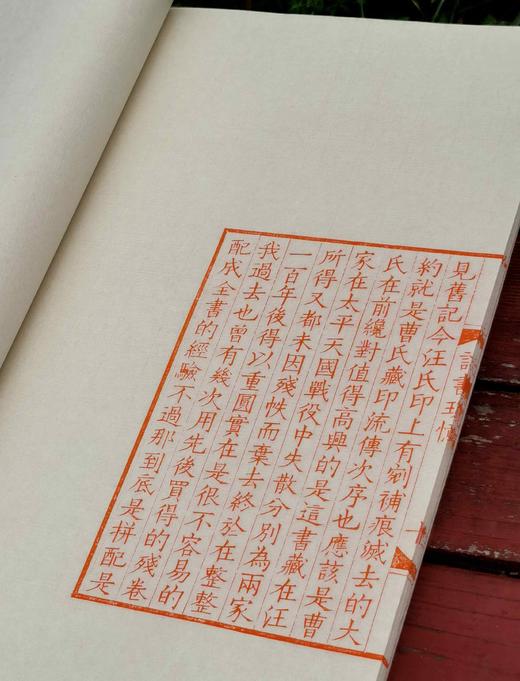 見舊記今汪氏印上有剜補痕滅去的大
約就是曹氏藏印流傳次序也應該是曹
氏在前纔對值得高興的是這書藏在汪
家在太平天國戰役中失散分別為兩家
所得又都未因殘帙而棄去終於在整整
一百年後得以重圓實在是很不容易的
我過去也曾有幾次用先後買得的殘卷
配成全書的經驗不過那到底是拼配是